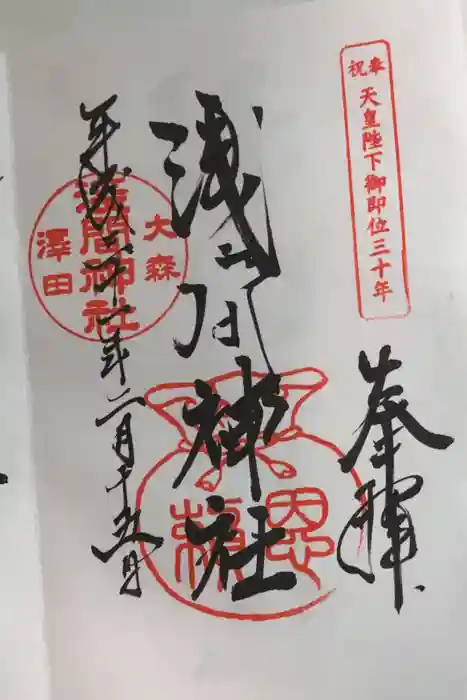 奉祝
天皇陛下御即位三十年
奉拝
浅间神社
恩頼
大森
浅間神社
澤田
平成三十一年二月十五日